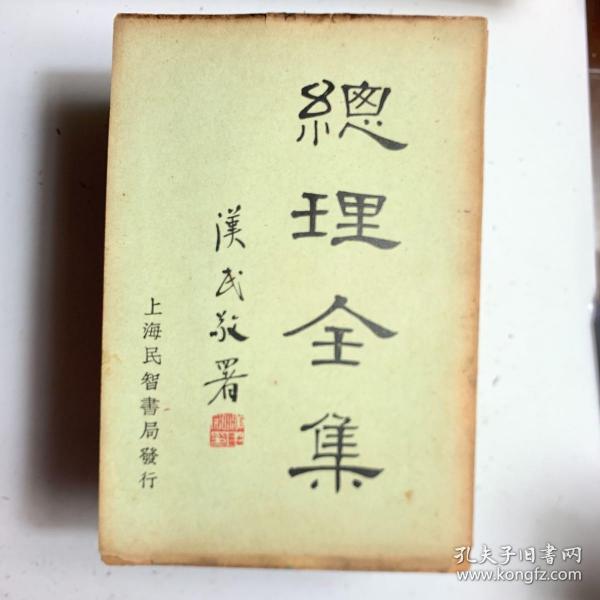 總理全集
漢民敬署
上海民智書局發行
孔夫子旧书网
www.kongfz.com